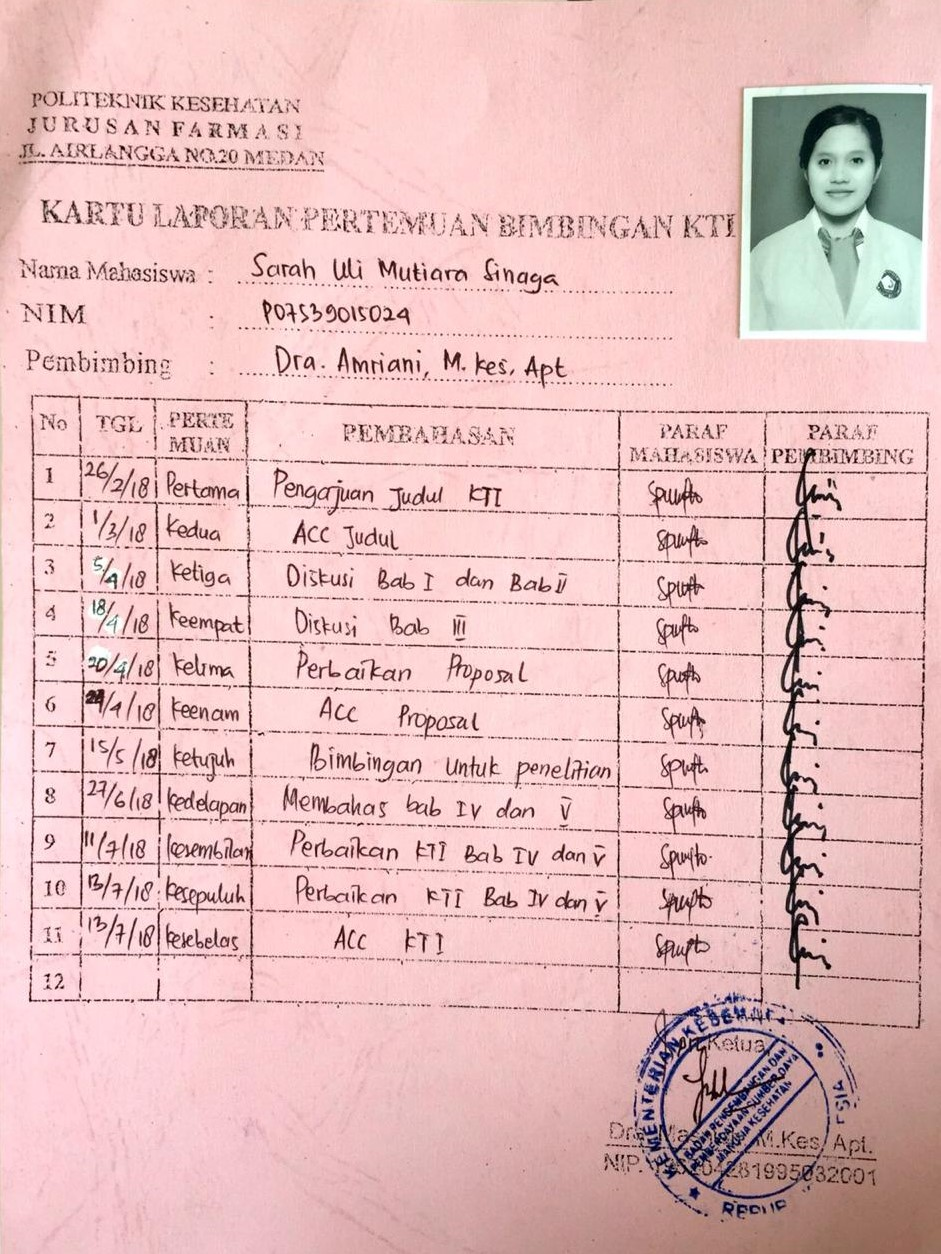 POLITEKNIK KESEHATAN
JURUSAN FARMASI
JL. AIRLANGGA NO.20 MEDAN
KARTU LAPORAN PERTEMUAN BIMBINGAN KTI
Nama Mahasiswa : Sarah Uli Mutiara Sinaga
NIM : P07539015024
Pembimbing : Dra. Amriani, M.Kes, Apt
No TGL PERTEMUAN PEMBAHASAN PARAF MAHASISWA PARAF PEMBIMBING
1 26/2/18 Pertama Pengajuan Judul KTI
2 1/3/18 Kedua ACC Judul
3 5/4/18 Ketiga Diskusi Bab I dan Bab II
4 18/4/18 Keempat Diskusi Bab III
5 20/4/18 Kelima Perbaikan Proposal
6 /4/18 Keenam ACC Proposal
7 15/5/18 Ketujuh Bimbingan untuk penelitian
8 27/6/18 Kedelapan Membahas bab IV dan V
9 11/7/18 Kesembilan Perbaikan KTI Bab IV dan V
10 13/7/18 Kesepuluh Perbaikan KTI Bab IV dan V
11 13/7/18 Kesebelas ACC KTI
12
Ketua,
KEMENTERIAN KESEHAT
BADAN PENGEMBANGAN DAN
PEMBERDAYAAN SUMBER DAYA
MANUSIA KESEHATAN
REPUB
SIA
M.Kes, Apt.
NIP. 204281995032001